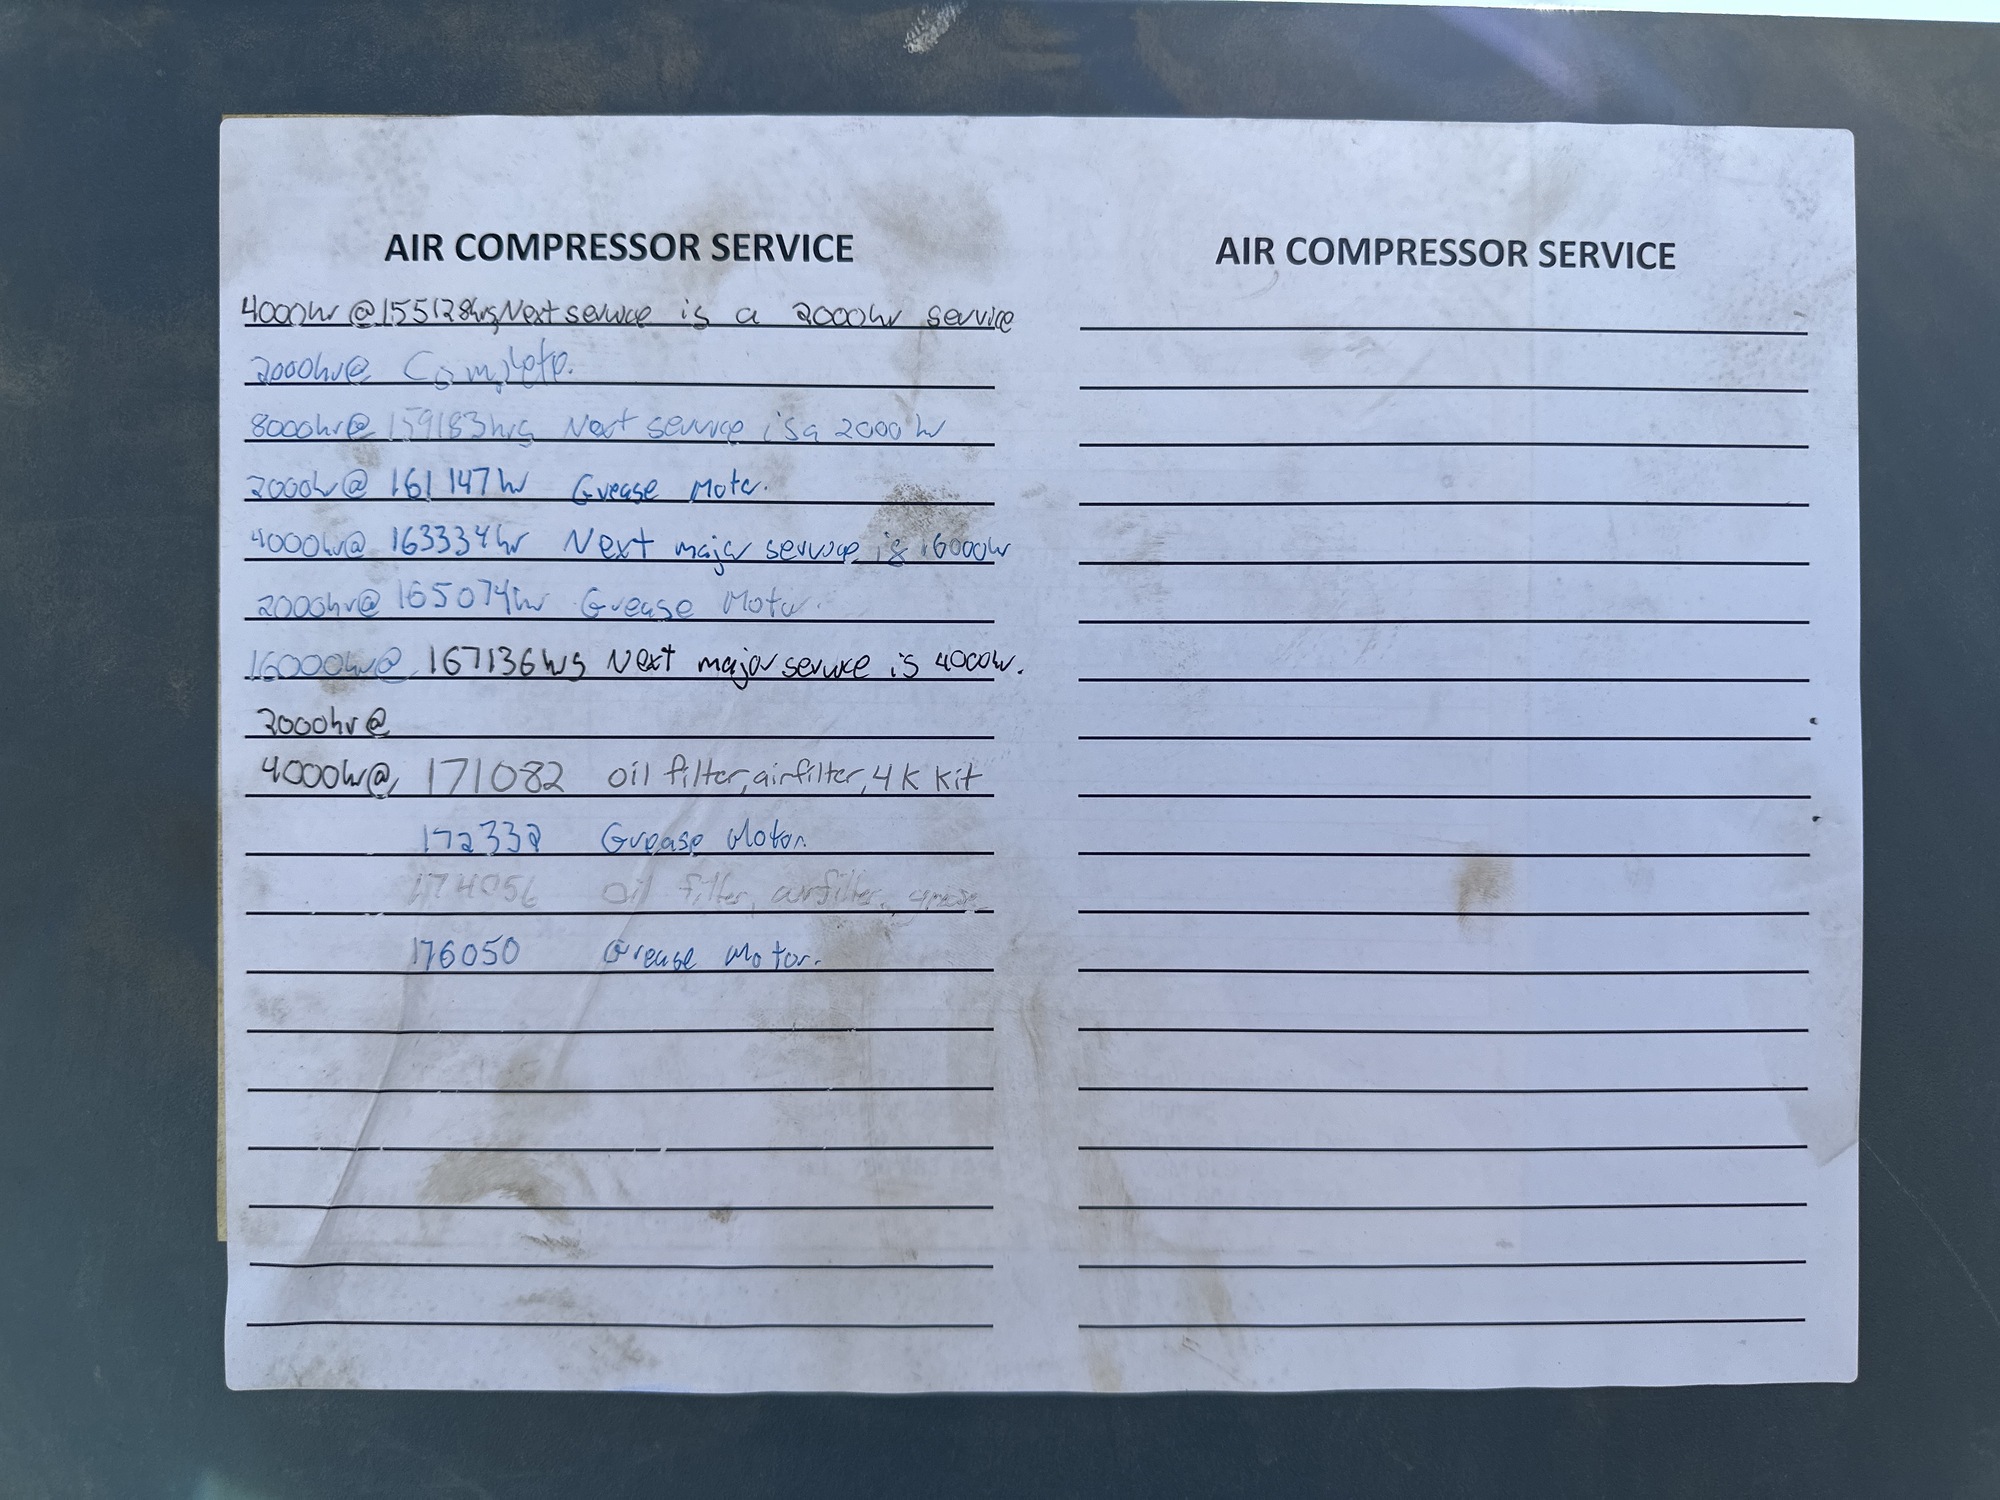 AIR COMPRESSOR SERVICE
4000hr @ 155128hrs Next service is a 2000hr service
2000hr@ Complete.
8000hr@ 159183hrs Next service is a 2000hr
2000hr@ 161147hr Grease Motor.
4000hr@ 163334hr Next major service is 16000hr
2000hr@ 165074hr Grease Motor.
16000hr@ 167136hrs Next major service is 4000hr.
2000hr@
4000hr@ 171082 oil filter, airfilter, 4K Kit
172332 Grease Motor.
174056 Oil filter, airfilter,
176050 Grease Motor.
AIR COMPRESSOR SERVICE